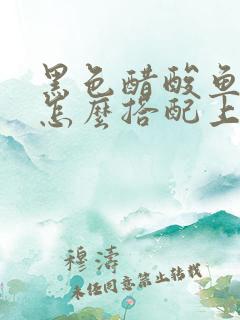 黑色醋酸鱼
怎麼搭配上
穆濤
未经同意禁止转载